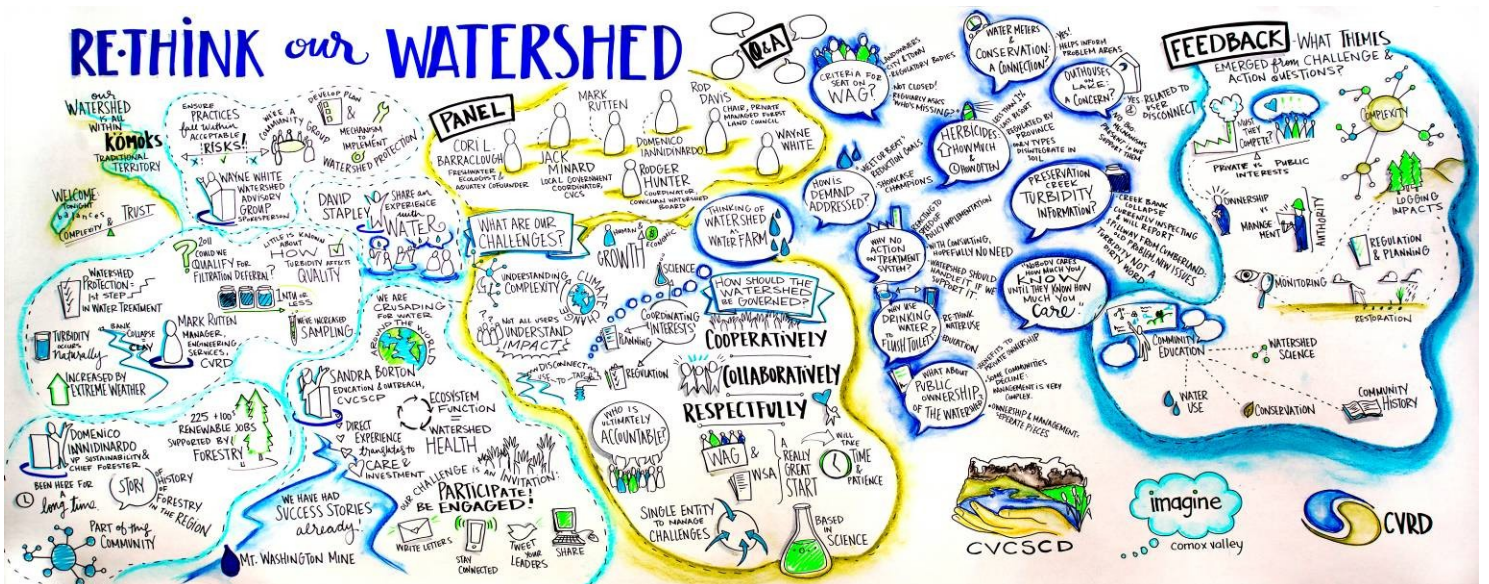 RE-THINK our WATERSHED
our
WATERSHED
IS ALL
WITHIN
KÓMOKS
TRADITIONAL
TERRITORY
WELCOME:
TONIGHT
balances
COMPLEXITY & TRUST
ENSURE
PRACTICES
fall within
ACCEPTABLE
RISKS!
WE'RE A
COMMUNITY GROUP
DEVELOP PLAN
&
MECHANISM
TO
IMPLEMENT
WATERSHED PROTECTION
WAYNE WHITE
WATERSHED
ADVISORY
GROUP
SPOKESPERSON
DAVID
STAPLEY
SHARE an
EXPERIENCE
with
WATER
WATERSHED
PROTECTION =
1ST STEP
IN WATER TREATMENT
? 2011
COULD WE
QUALIFY FOR
FILTRATION DEFERRAL?
LITTLE IS KNOWN
ABOUT
HOW
TURBIDITY AFFECTS
QUALITY
1 NTU or
LESS
WE'VE INCREASED
SAMPLING
TURBIDITY
OCCURS
naturally
BANK
COLLAPSE
CLAY
MARK RUTTEN
MANAGER,
ENGINEERING
SERVICES,
CVRD
INCREASED BY
EXTREME WEATHER
WE ARE
CRUSADING
FOR WATER
AROUND THE WORLD
SANDRA BORTON
EDUCATION & OUTREACH,
CVCSCP
DIRECT
EXPERIENCE
translates to
CARE &
INVESTMENT
ECOSYSTEM
FUNCTION
=
WATERSHED
HEALTH
DOMENICO
IANNIDINARDO
VP SUSTAINABILITY &
CHIEF FORESTER
225 + 100s
RENEWABLE JOBS
SUPPORTED BY
FORESTRY
BEEN HERE FOR
A
long time
STORY
OF
HISTORY
OF
FORESTRY
IN THE REGION
PART of the
COMMUNITY
WE HAVE HAD
SUCCESS STORIES
already!
MT. WASHINGTON MINE
OUR CHALLENGE IS AN
INVITATION:
PARTICIPATE!
BE ENGAGED!
WRITE LETTERS
STAY
CONNECTED
TWEET
YOUR
LEADERS
SHARE
PANEL
CORI L.
BARRACLOUGH
FRESHWATER
ECOLOGIST &
AQUATEX COFOUNDER
JACK
MINARD
LOCAL GOVERNMENT
COORDINATOR,
CVCS
MARK
RUTTEN
DOMENICO
IANNIDINARDO
RODGER
HUNTER
COORDINATOR,
COWICHAN WATERSHED
BOARD
ROD
DAVIS
CHAIR, PRIVATE
MANAGED FOREST
LAND COUNCIL
WAYNE
WHITE
WHAT ARE OUR
CHALLENGES?
& ECONOMIC
GROWTH
UNDERSTANDING
COMPLEXITY
CLIMATE
CHANGE
SCIENCE
NOT ALL USERS
UNDERSTAND
IMPACT
COORDINATING
INTERESTS
PLANNING
REGULATION
DISCONNECT
USE - TO - TAP
WHO IS
ULTIMATELY
ACCOUNTABLE?
THINKING OF
WATERSHED
as
WATER FARM
HOW SHOULD THE
WATERSHED
BE GOVERNED?
COOPERATIVELY
COLLABORATIVELY
RESPECTFULLY
WAG
&
WSA
A
REALLY
GREAT
START
WILL
TAKE
TIME
&
PATIENCE
SINGLE ENTITY
TO MANAGE
CHALLENGES
BASED
IN
SCIENCE
Q&A
CRITERIA FOR
SEAT ON
WAG?
LANDOWNERS
CITY & TOWN
REGULATORY BODIES
NOT CLOSED!
REGULARLY ASKS
WHO'S MISSING?
WATER METERS
&
CONSERVATION:
A CONNECTION?
YES!
HELPS INFORM
PROBLEM AREAS
OUTHOUSES
ON
LAKE,
A CONCERN?
YES. RELATED TO
USER
DISCONNECT
HERBICIDES
HOW MUCH
& HOW OFTEN
LESS THAN 1%
REGULATED BY
PROVINCE
MANY TYPES
DISINTEGRATE IN
SOIL
HOW IS
DEMAND
ADDRESSED?
MEET OR BEAT
REDUCTION GOALS
SHOWCASE
CHAMPIONS
PRESERVATION
CREEK
TURBIDITY
INFORMATION?
CREEK BANK
COLLAPSE
CURRENTLY INSPECTING
& WILL REPORT
PILWAY FROM CUMBERLAND:
OLD PROBLEM, NEW ISSUES
TURBIDITY NOT A
DIRTY WORD
WHY NO
ACTION ON
TREATMENT
SYSTEM?
REACTING TO
SPEED OF
POLICY IMPLEMENTATION
WITH CONSULTING,
HOPEFULLY NO NEED
WATERSHED SHOULD
HANDLE IT IF WE
SUPPORT IT.
"NOBODY CARES
HOW MUCH YOU
KNOW
UNTIL THEY KNOW HOW
MUCH YOU
Care"
WHY USE
DRINKING
WATER
TO
FLUSH TOILETS?
RE-THINK
WATER USE
EDUCATION
WHAT ABOUT
PUBLIC
OWNERSHIP
OF THE WATERSHED?
BENEFITS TO
PRIVATE OWNERSHIP
SOME COMMUNITIES
DECLINE:
MANAGEMENT IS VERY
COMPLEX.
OWNERSHIP & MANAGEMENT:
SEPERATE PIECES
FEEDBACK - WHAT THEMES
EMERGED from CHALLENGE &
ACTION QUESTIONS?
MUST
THEY
COMPETE?
PRIVATE vs PUBLIC
INTERESTS
COMPLEXITY
LOGGING
IMPACTS
OWNERSHIP
vs
MANAGEMENT
AUTHORITY
REGULATION
& PLANNING
MONITORING
RESTORATION
COMMUNITY
EDUCATION
WATERSHED
SCIENCE
WATER
USE
CONSERVATION
COMMUNITY
HISTORY
CVCSCD
imagine
comox valley
CVRD